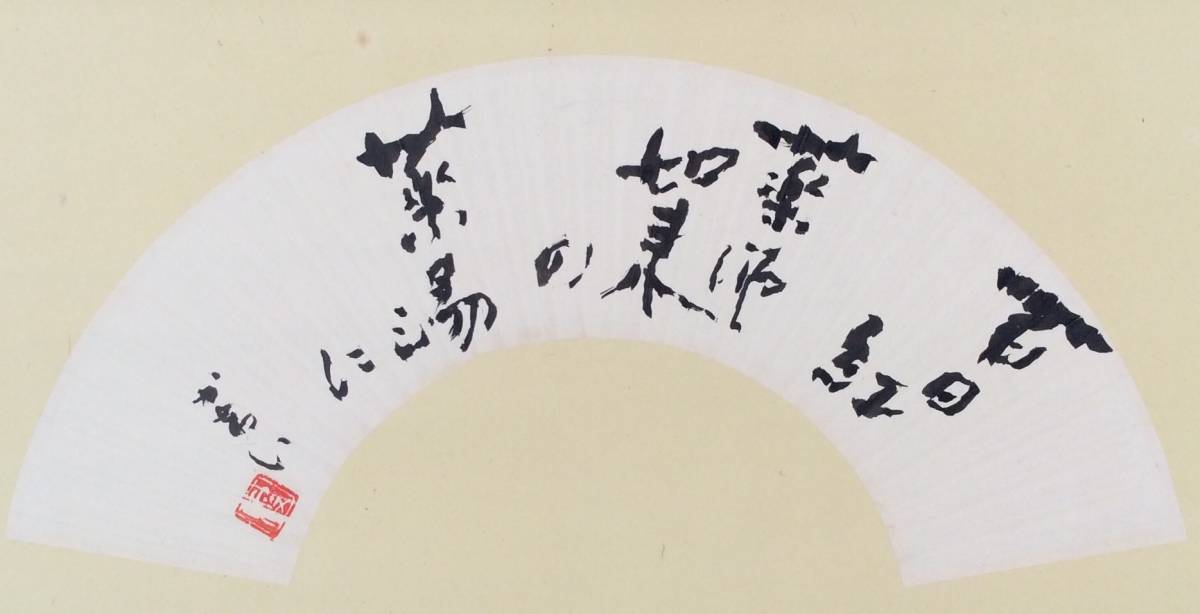 百日紅
薬師
如来
の
薬湯
に